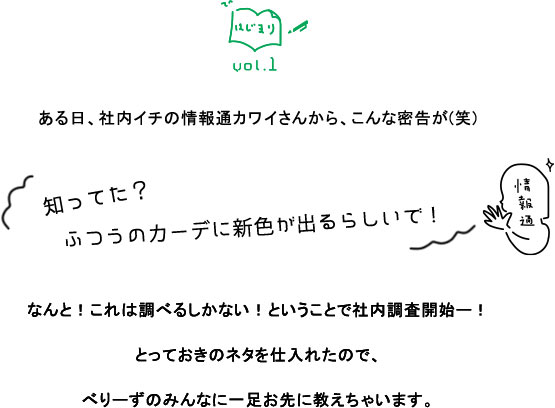 はじまり
vol.1
ある日、社内イチの情報通カワイさんから、こんな密告が(笑)
知ってた？
ふつうのカーデに新色が出るらしいで！
情報通
なんと！これは調べるしかない！ということで社内調査開始ー！
とっておきのネタを仕入れたので、
べりーずのみんなに一足お先に教えちゃいます。